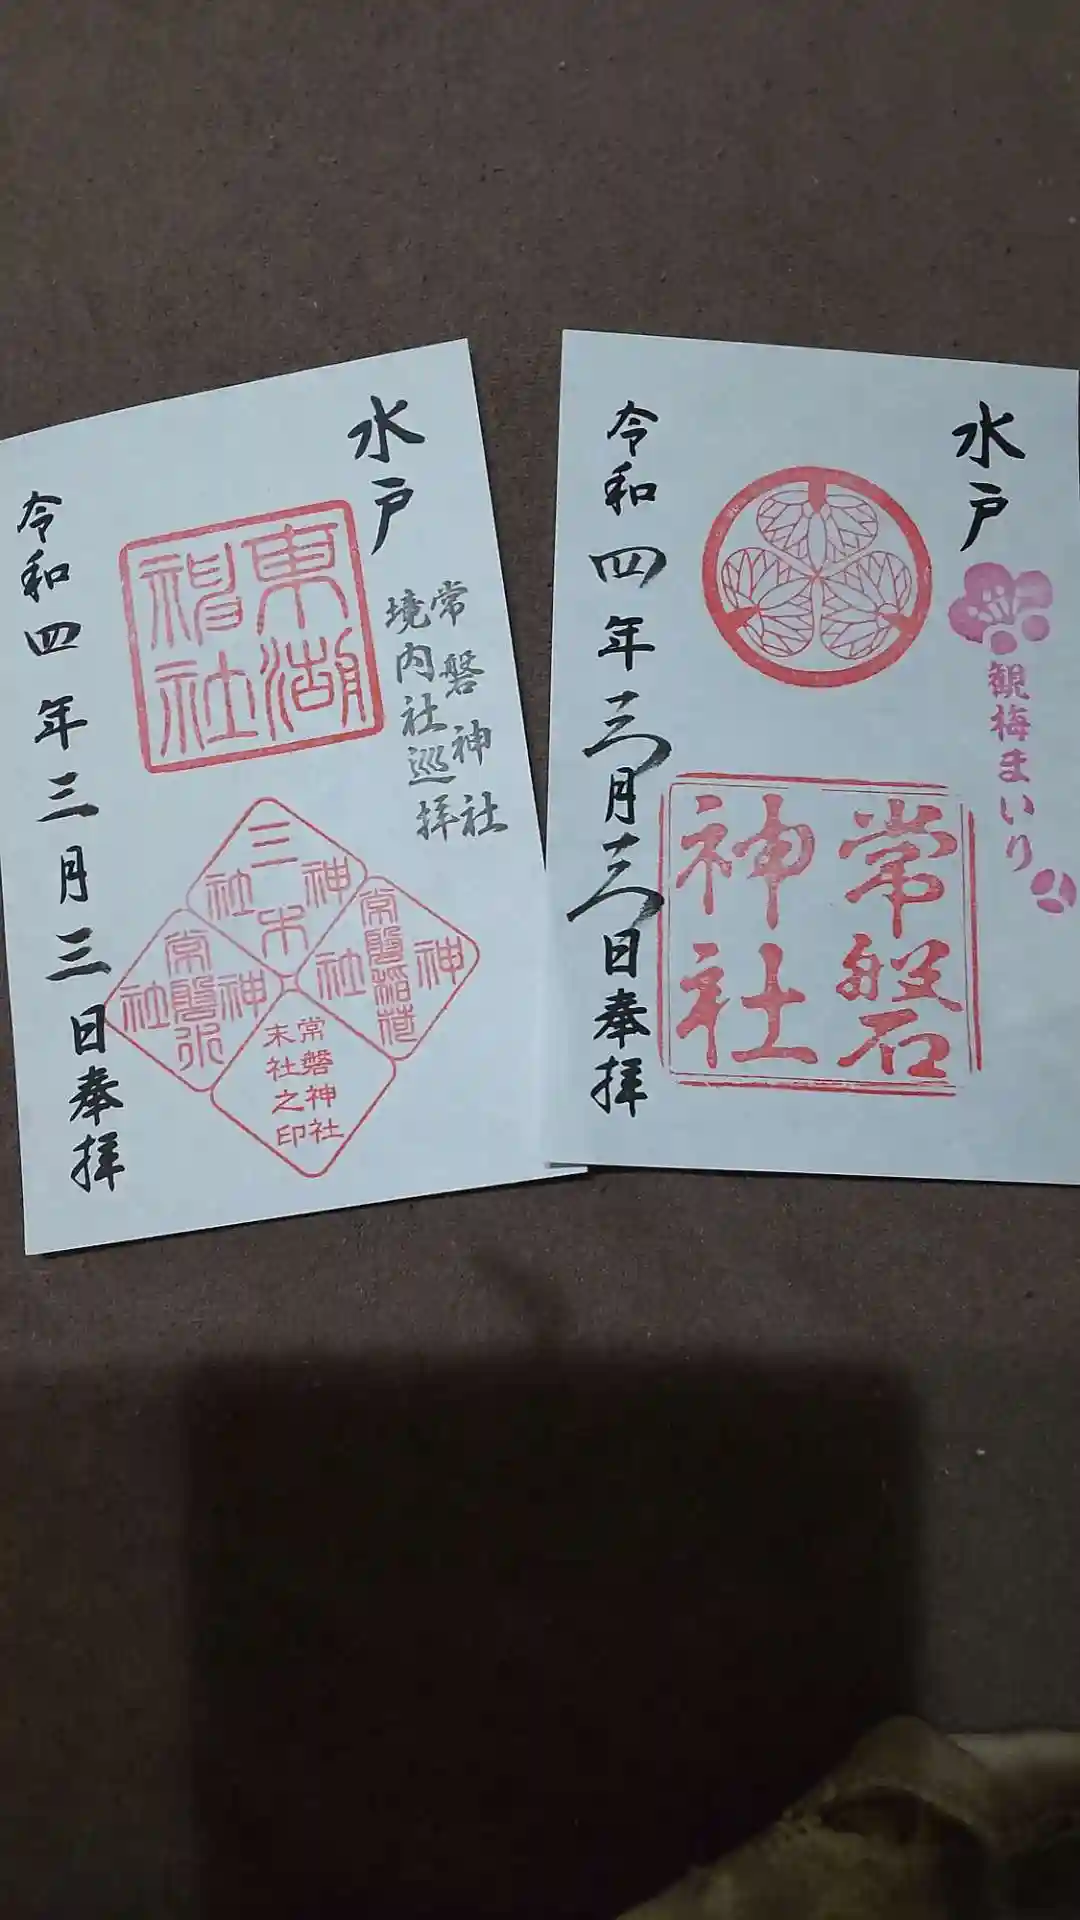 水戸
観梅まいり
常磐
神社
令和四年三月三日奉拝
水戸
常磐神社
境内社巡拝
東湖
神社
三木
神社
常磐稲荷
神社
常磐
神社
常磐神社
末社之印
令和四年三月三日奉拝